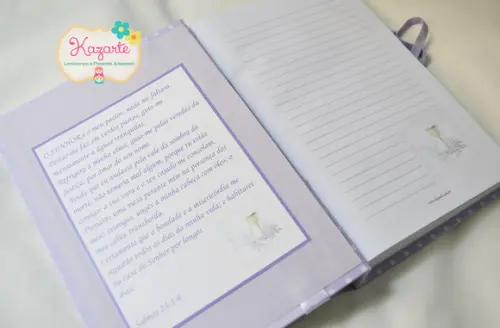 Kazarte
Lembranças e Presentes Artesanais
O SENHOR é o meu pastor, nada me faltará.
Deitar-me faz em verdes pastos, guia-me
mansamente a águas tranquilas.
Refrigera a minha alma; guia-me pelas veredas da
justiça, por amor do seu nome.
Ainda que eu andasse pelo vale da sombra da
morte, não temeria mal algum, porque tu estás
comigo; a tua vara e o teu cajado me consolam.
Preparas uma mesa perante mim na presença dos
meus inimigos, unges a minha cabeça com óleo, o
meu cálice transborda.
Certamente que a bondade e a misericórdia me
seguirão todos os dias da minha vida; e habitarei
na casa do Senhor por longos
dias.
Salmos 23:1-6